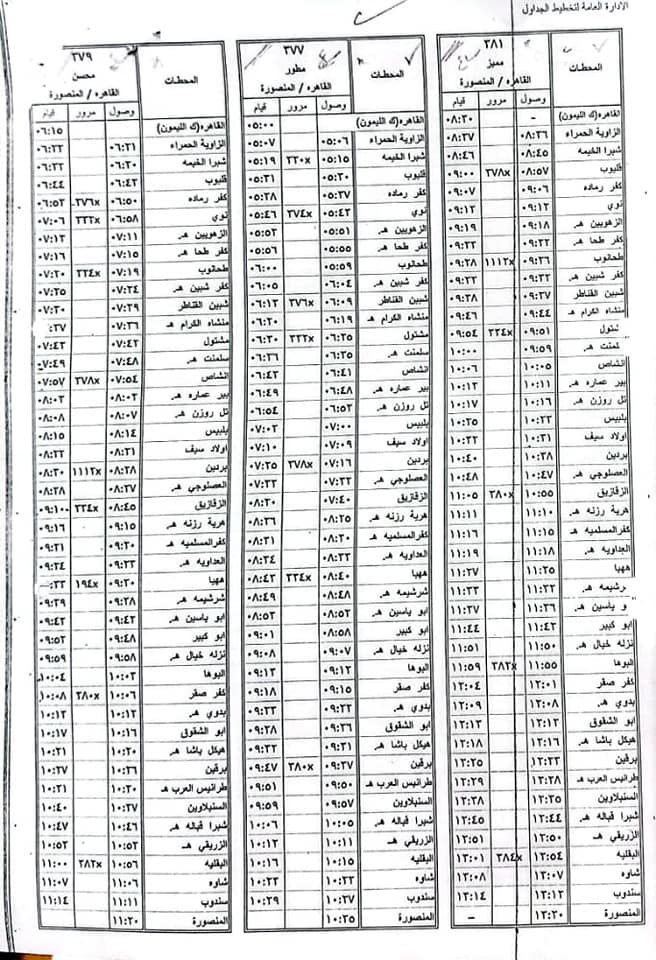 الادارة العامة لتخطيط الجداول
٣٨١
مميز
القاهرة / المنصورة
المحطات وصول مرور قيام
القاهره(ك الليمون) - ٠٨:٢٠
الزاوية الحمراء ٠٨:٢٦ ٠٨:٢٧
شبرا الخيمه ٠٨:٤٥ ٠٨:٤٦
قليوب ٠٨:٥٧ ٢٧٨x ٠٩:٠٠
كفر رماده ٠٩:٠٦ ٠٩:٠٧
نوي ٠٩:١٢ ٠٩:١٣
الزهويين هـ ٠٩:١٨ ٠٩:١٩
كفر طحا هـ ٠٩:٢٢ ٠٩:٢٣
طحانوب ٠٩:٢٦ ١١١٢x ٠٩:٢٨
كفر شبين هـ ٠٩:٣٢ ٠٩:٣٣
شبين القناطر ٠٩:٣٧ ٠٩:٣٨
منشاه الكرام هـ ٠٩:٤٤ ٠٩:٤٦
٠٩:٥١ ٣٣٤x ٠٩:٥٤
٠٩:٥٩ ١٠:٠٠
انشاص ١٠:٠٥ ١٠:٠٦
بير عماره هـ ١٠:١١ ١٠:١٢
تل روزن هـ ١٠:١٦ ١٠:١٧
بلبيس ١٠:٢٣ ١٠:٢٥
اولاد سيف ١٠:٣١ ١٠:٣٢
بردين ١٠:٣٨ ١٠:٤٠
العصلوجي هـ ١٠:٤٧ ١٠:٤٨
الزقازيق ١٠:٥٥ ٢٨٠x ١١:٠٥
هرية رزنه هـ ١١:١٠ ١١:١١
كفر المسلميه هـ ١١:١٥ ١١:١٦
العداويه هـ ١١:١٨ ١١:١٩
ههيا ١١:٢٥ ١١:٢٧
١١:٣٢ ١١:٣٣
و ياسين هـ ١١:٣٦ ١١:٣٧
ابو كبير ١١:٤٢ ١١:٤٤
نزله خيال هـ ١١:٥٠ ١١:٥١
البوها ١١:٥٥ ٣٨٢x ١١:٥٩
كفر صقر ١٢:٠١ ١٢:٠٤
بدوي هـ ١٢:٠٨ ١٢:٠٩
ابو الشقوق ١٢:١٢ ١٢:١٣
هيكل باشا هـ ١٢:١٦ ١٢:١٨
برقين ١٢:٢٣ ١٢:٢٥
طرانيس العرب هـ ١٢:٢٨ ١٢:٢٩
السنبلاوين ١٢:٣٥ ١٢:٣٨
شبرا قباله هـ ١٢:٤٤ ١٢:٤٥
الزريقي هـ ١٢:٥٠ ١٢:٥١
البقليه ١٢:٥٤ ٣٨٤x ١٣:٠١
شاوه ١٣:٠٧ ١٣:٠٨
سندوب ١٣:١٣ ١٣:١٤
المنصورة ١٣:٢٠ -
٣٧٧
مطور
القاهره / المنصورة
المحطات وصول مرور قيام
القاهره(ك الليمون) ٠٥:٠٠
الزاوية الحمراء ٠٥:٠٦ ٠٥:٠٧
شبرا الخيمه ٠٥:١٥ ٣٢٠x ٠٥:١٩
قليوب ٠٥:٣٠ ٠٥:٣١
كفر رماده ٠٥:٣٧ ٠٥:٣٨
نوي ٠٥:٤٣ ٣٧٤x ٠٥:٤٦
الزهويين هـ ٠٥:٥١ ٠٥:٥٢
كفر طحا هـ ٠٥:٥٥ ٠٥:٥٦
طحانوب ٠٥:٥٩ ٠٦:٠٠
كفر شبين هـ ٠٦:٠٤ ٠٦:٠٥
شبين القناطر ٠٦:٠٩ ٣٧٦x ٠٦:١٣
منشاه الكرام هـ ٠٦:١٩ ٠٦:٢٠
مشتول ٠٦:٢٥ ٣٣٢x ٠٦:٣٠
سلمنت هـ ٠٦:٣٥ ٠٦:٣٦
انشاص ٠٦:٤١ ٠٦:٤٣
بير عماره هـ ٠٦:٤٨ ٠٦:٤٩
تل روزن هـ ٠٦:٥٣ ٠٦:٥٤
بلبيس ٠٧:٠٠ ٠٧:٠٢
اولاد سيف ٠٧:٠٩ ٠٧:١٠
بردين ٠٧:١٦ ٢٧٨x ٠٧:٢٥
العصلوجي هـ ٠٧:٣٢ ٠٧:٣٣
الزقازيق ٠٧:٤٠ ٠٨:٢٠
هرية رزنه هـ ٠٨:٢٥ ٠٨:٢٦
كفر المسلميه هـ ٠٨:٣٠ ٠٨:٣١
العداويه هـ ٠٨:٣٣ ٠٨:٣٤
ههيا ٠٨:٤٠ ٣٣٤x ٠٨:٤٣
شرشيمه هـ ٠٨:٤٨ ٠٨:٤٩
ابو ياسين هـ ٠٨:٥٢ ٠٨:٥٣
ابو كبير ٠٨:٥٨ ٠٩:٠١
نزله خيال هـ ٠٩:٠٧ ٠٩:٠٨
البوها ٠٩:١٢ ٠٩:١٣
كفر صقر ٠٩:١٥ ٠٩:١٨
بدوي هـ ٠٩:٢٢ ٠٩:٢٣
ابو الشقوق ٠٩:٢٦ ٠٩:٢٨
هيكل باشا هـ ٠٩:٣١ ٠٩:٣٢
برقين ٠٩:٣٧ ٢٨٠x ٠٩:٤٧
طرانيس العرب هـ ٠٩:٥٠ ٠٩:٥١
السنبلاوين ٠٩:٥٧ ٠٩:٥٩
شبرا قباله هـ ١٠:٠٥ ١٠:٠٦
الزريقي هـ ١٠:١١ ١٠:١٢
البقليه ١٠:١٥ ١٠:١٦
شاوه ١٠:٢٢ ١٠:٢٣
سندوب ١٠:٢٧ ١٠:٢٩
المنصورة ١٠:٣٥
٣٧٩
محسن
القاهره / المنصورة
المحطات وصول مرور قيام
القاهره(ك الليمون) ٠٦:١٥
الزاوية الحمراء ٠٦:٢١ ٠٦:٢٢
شبرا الخيمه ٠٦:٣٠ ٠٦:٣٢
قليوب ٠٦:٤٣ ٠٦:٤٤
كفر رماده ٠٦:٥٠ ٣٧٦x ٠٦:٥٣
نوي ٠٦:٥٨ ٣٣٢x ٠٧:٠٦
الزهويين هـ ٠٧:١١ ٠٧:١٢
كفر طحا هـ ٠٧:١٥ ٠٧:١٦
طحانوب ٠٧:١٩ ٣٣٤x ٠٧:٢٠
كفر شبين هـ ٠٧:٢٤ ٠٧:٢٥
شبين القناطر ٠٧:٢٩ ٠٧:٣٠
منشاه الكرام هـ ٠٧:٣٦ :٣٧
مشتول ٠٧:٤٢ ٠٧:٤٣
سلمنت هـ ٠٧:٤٨ ٠٧:٤٩
انشاص ٠٧:٥٤ ٢٧٨x ٠٧:٥٧
بير عماره هـ ٠٨:٠٢ ٠٨:٠٣
تل روزن هـ ٠٨:٠٧ ٠٨:٠٨
بلبيس ٠٨:١٤ ٠٨:١٥
اولاد سيف ٠٨:٢١ ٠٨:٢٢
بردين ٠٨:٢٨ ١١١٢x ٠٨:٣٠
العصلوجي هـ ٠٨:٣٧ ٠٨:٣٨
الزقازيق ٠٨:٤٥ ٣٣٤x ٠٩:١٠
هرية رزنه هـ ٠٩:١٥ ٠٩:١٦
كفر المسلميه هـ ٠٩:٢٠ ٠٩:٢١
العداويه هـ ٠٩:٢٣ ٠٩:٢٤
ههيا ٠٩:٣٠ ١٩٤x :٣٣
شرشيمه هـ ٠٩:٣٨ ٠٩:٣٩
ابو ياسين هـ ٠٩:٤٢ ٠٩:٤٣
ابو كبير ٠٩:٤٨ ٠٩:٥٢
نزله خيال هـ ٠٩:٥٨ ٠٩:٥٩
البوها ١٠:٠٣ ١٠:٠٤
كفر صقر ١٠:٠٦ ٢٨٠x ١٠:٠٨
بدوي هـ ١٠:١٢ ١٠:١٣
ابو الشقوق ١٠:١٦ ١٠:١٧
هيكل باشا هـ ١٠:٢٠ ١٠:٢١
برقين ١٠:٢٦ ١٠:٢٧
طرانيس العرب هـ ١٠:٣٠ ١٠:٣١
السنبلاوين ١٠:٣٧ ١٠:٤٠
شبرا قباله هـ ١٠:٤٦ ١٠:٤٧
الزريقي هـ ١٠:٥٢ ١٠:٥٣
البقليه ١٠:٥٦ ٣٨٢x ١١:٠٠
شاوه ١١:٠٦ ١١:٠٧
سندوب ١١:١١ ١١:١٤
المنصورة ١١:٢٠